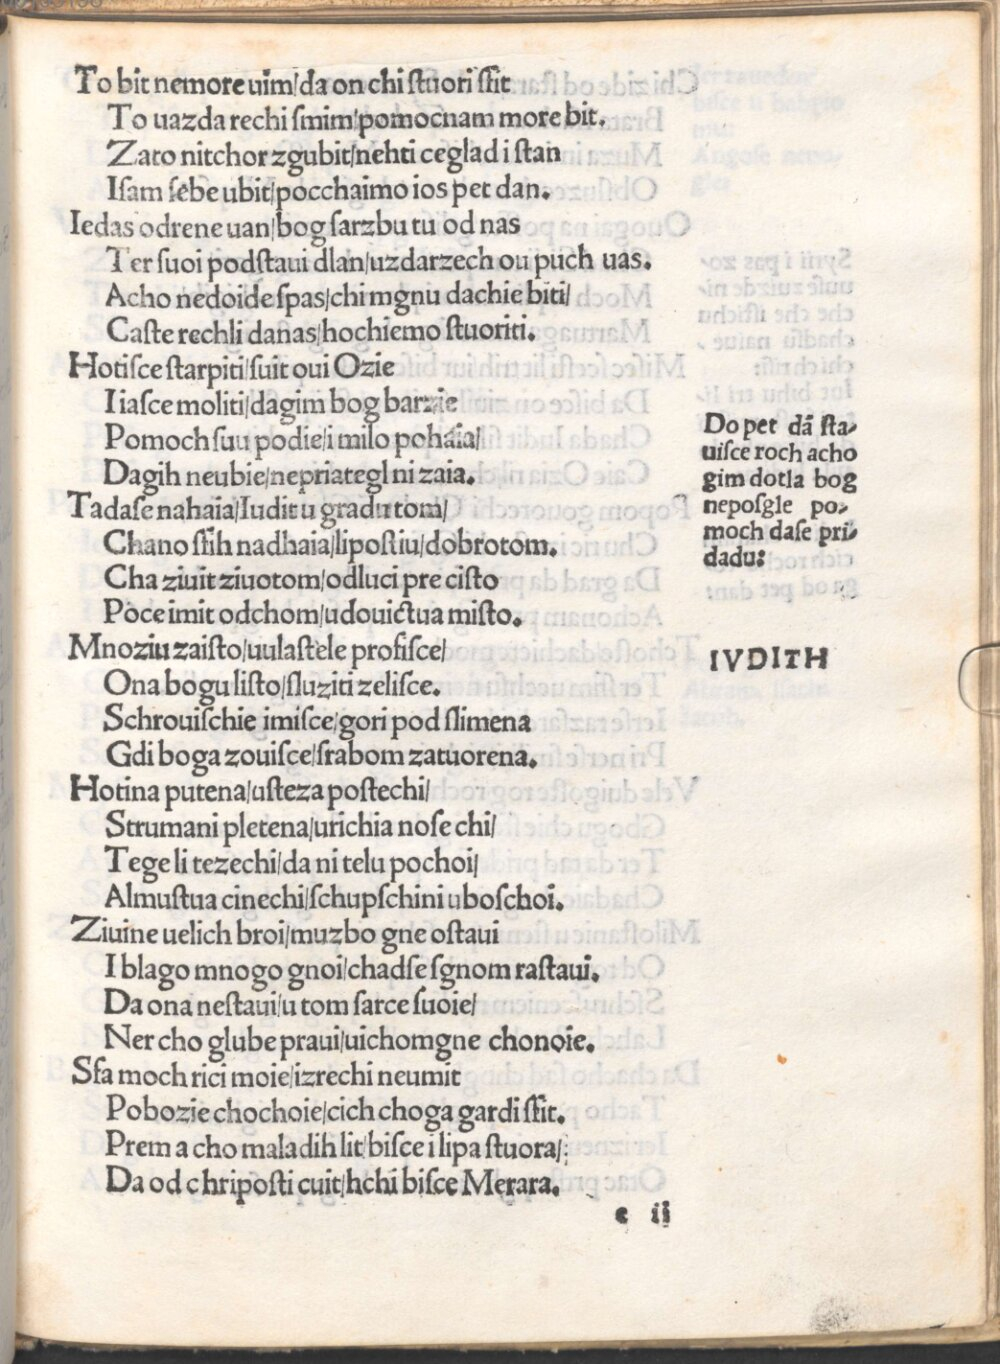 To bit nemore uim/da on chi ſtuori ſſit
To uazda rechi ſmim/pomocnam more bit.
Zato nitchor zgubit/nehti ceglad i ſtan
Iſam ſebe ubit/pocchaimo ios pet dan.
Iedas odrene uan/bog ſarzbu tu od nas
Ter ſuoi podſtaui dlan/uzdarzech ou puch uas.
Acho nedoide ſpas/chi mgnu dachie biti/
Caſte rechli danas/hochiemo ſtuoriti.
Hotiſce ſtarpiti/ſuit oui Ozie
I iaſce moliti/dagim bog barzie
Pomoch ſuu podie/i milo pohaia/
Dagih neubie/nepriategl ni zaia.
Tadaſe nahaia/Iudit u gradu tom/
Chano ſſih nadhaia/lipoſtiu/dobrotom.
Cha ziuit ziuotom/odluci pre ciſto
Poce imit odchom/udouictua miſto.
Mnoziu zaiſto/uulaſtele profiſce/
Ona bogu liſto/ſluziti zeliſce.
Schrouiſchie imiſce/gori pod ſlimena
Gdi boga zouiſce/ſrabom zatuorena.
Hotina putena/uſteza poſtechi/
Strumani pletena/urichia noſe chi/
Tege li tezechi/da ni telu pochoi/
Almuſtua cinechi/ſchupſchini uboſchoi.
Ziuine uelich broi/muzbo gne oſtaui
I blago mnogo gnoi/chadſe ſgnom raſtaui.
Da ona neſtaui/u tom ſarce ſuoie/
Ner cho glube praui/uichomgne chonoie.
Sſa moch rici moie/izrechi neumit
Pobozie chochoie/cich choga gardi ſſit.
Prem a cho maladih lit/biſce i lipa ſtuora/
Da od chripoſti cuit/hchi biſce Merara.
e ii
Do pet dā ſta-
uiſce roch acho
gim dotla bog
nepoſgle po-
moch daſe pri-
dadu:
IVDITH